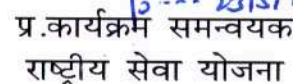 प्र.कार्यक्रम समन्वयक
राष्ट्रीय सेवा योजना